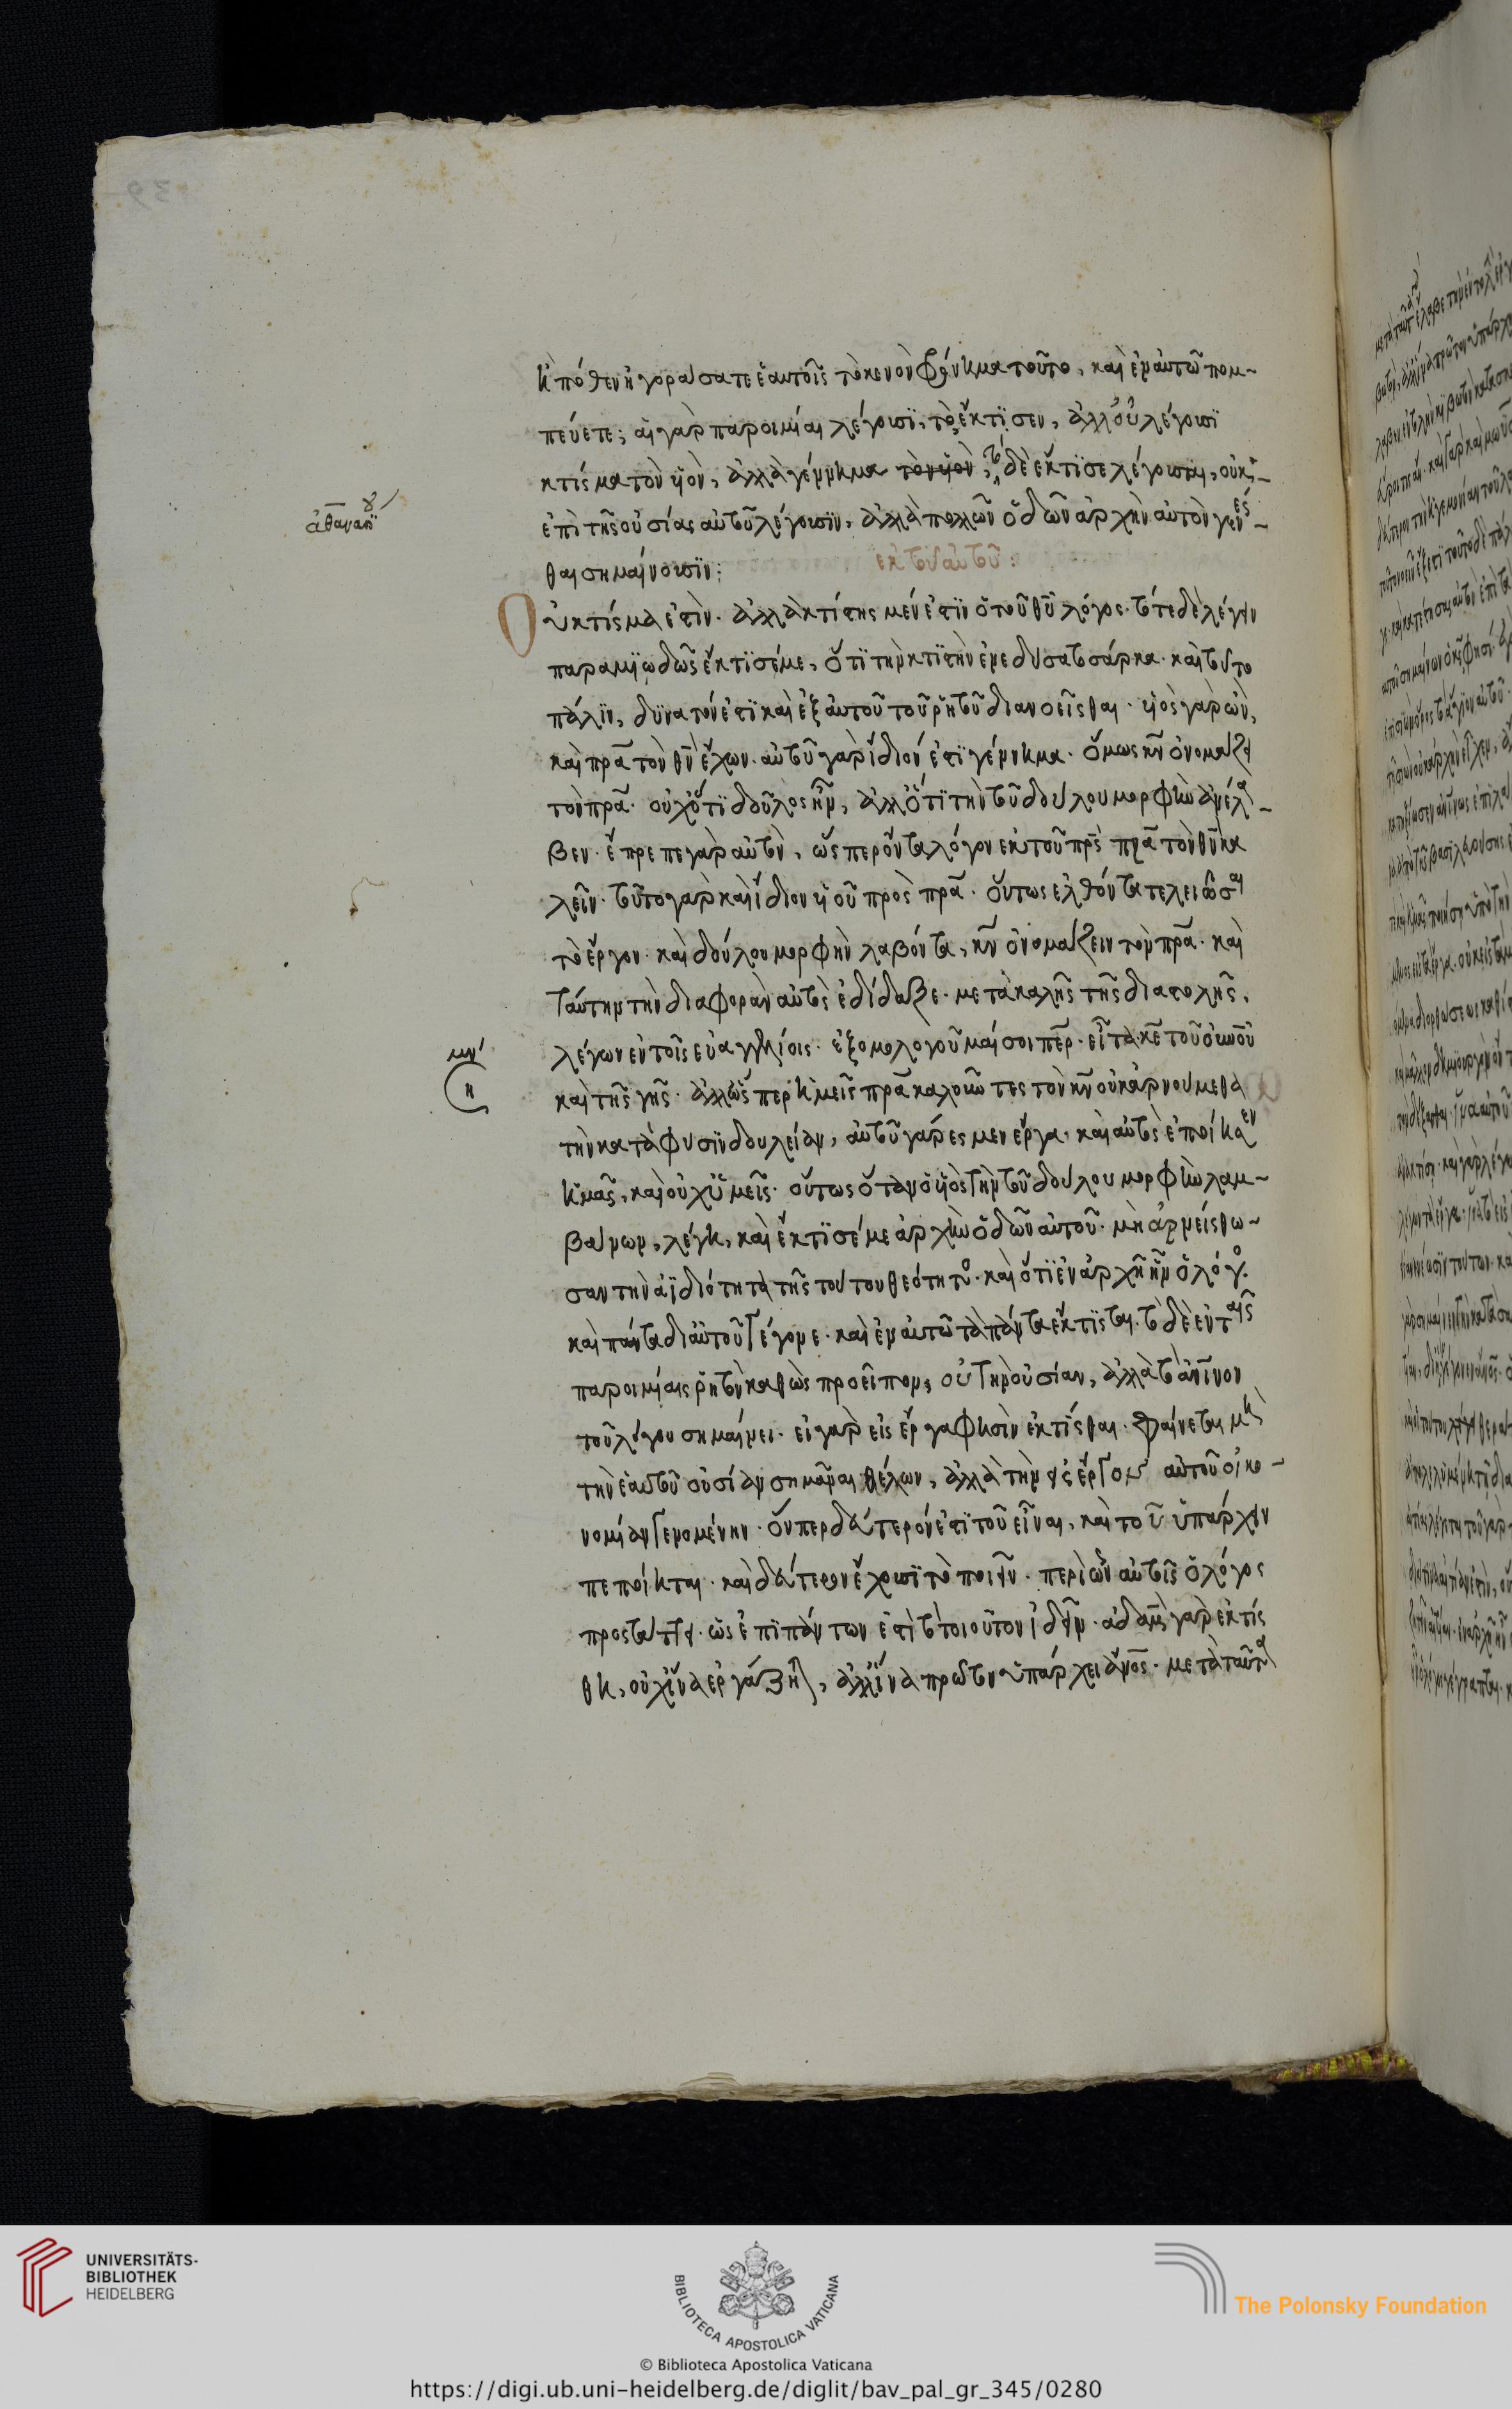 ἢ πόθεν ἠγοράσατε ἑαυτοῖς τὸ κενὸν φρύνημα τοῦτο, καὶ ἐμαυτῶ πομ-
πεύετε; αἱ γὰρ παροιμίαι λέγουσϊ, τὸ ἔκτισεν, ἀλλ' οὐ λέγουσϊ
κτίσμα τὸν υἱὸν, ἀλλὰ γέννημα τὸν υἱὸν, τὸ δὲ ἔκτϊσε λέγουσαι, οὐκ
ἐπὶ τῆς οὐσίας αὐτοῦ λέγουσϊν, ἀλλὰ πολλῶν ὁδῶν ἀρχὴν αὐτὸν γενέσ-
θαι σημαίνουσϊν:
ἐκ τοῦ αὐτοῦ:
ἀθανασΐου
Οὐ κτίσμα ἐστὶν. ἀλλὰ κτίστης μέν ἐστϊν ὁ τοῦ θῦ λόγος. τότε δὲ λέγειν
παροιμϊωδῶς ἔκτϊσέ με, ὅτϊ τὴν κτϊστὴν ἐνεδύσατο σάρκα. καὶ τοῦτο
πάλϊν, δϋνατόν ἐστϊ καὶ ἐξ αὐτοῦ τοῦ ῥητοῦ διανοεῖσθαι. υἱὸς γὰρ ὢν,
καὶ πρᾶ τὸν θν̅ ἔχων. αὐτοῦ γὰρ ἴδιόν ἐστϊ γέννημα. ὅμως κν̅ ὀνομάζει
τὸν πρᾶ. οὐχ' ὅτϊ δοῦλος ἦν, ἀλλ' ὅτϊ τὴν τοῦ δούλου μορφὴν ἀνέλα-
βεν. ἔπρεπε γὰρ αὐτὸν, ὥσπερ ὄντα λόγον ἐκ τοῦ πρς̅ πρᾶ τὸν θν̅ κα
λεῖν. τοῦτο γὰρ καὶ ἴδιον υἱοῦ πρὸς πρᾶ. οὕτως ἐλθόντα τελειῶσαι
τὸ ἔργον. καὶ δούλου μορφὴν λαβόντα, κν̅ ὀνομάζειν τὸν πρᾶ. καὶ
ταύτην τὴν διαφορὰν αὐτὸς ἐδίδαξε. μετὰ καλῆς τῆς διαστολῆς.
λέγων ἐν τοῖς εὐαγγελίοις. ἐξομολογοῦμαί σοι περ. εἶτα κε̅ τοῦ οὐνοῦ
μν'
η
καὶ τῆς γῆς. ἀλλ' ὥσπερ ἡμεῖς πρᾶ καλοῦντες τὸν κν̅ οὐκ ἀρνούμεθα
τὴν κατὰ φύσϊν δουλείαν, αὐτοῦ γάρ ἐσμεν ἔργα. καὶ αὐτὸς ἐποίησεν
ἡμᾶς, καὶ οὐχ ὑμεῖς. οὕτως ὅταν ὁ υἱὸς τὴν τοῦ δούλου μορφὴν λαμ-
βάνων, λέγη, καὶ ἔκτϊσέ με ἀρχὴν ὁδῶν αὐτοῦ. μὴ ἀρνείσθω-
σαν τὴν ἀϊδιότητα τῆς τούτου θεότητος. καὶ ὅτϊ ἐν ἀρχῆ ἦν ὁ λόγος.
καὶ πάντα δι' αὐτοῦ γέγονε. καὶ ἐν αὐτῶ τὰ πάντα ἔκτϊσται. τὸ δὲ ἐν ταῖς
παροιμίαις ῥητὸν καθὼς προεῖπον, οὐ τὴν οὐσίαν, ἀλλὰ τὸ ἀνι̅νον
τοῦ λόγου σημαίνει. εἰ γὰρ εἰς ἔργα φησὶν ἐκτίσθαι. φαίνεται μὴ
τὴν ἑαυτοῦ οὐσίαν σημᾶναι θέλων, ἀλλὰ τὴν εἰς ἔργον αὐτοῦ οἰκο-
νομίαν γενομένην. ὅνπερ δεύτερόν ἐστϊ τοῦ εἶναι, καὶ τοῦ ὑπάρχειν
πεποίηται. καὶ δεύτερον ἔχουσϊ τὸ ποιεῖν. περὶ ὧν αὐτοῖς ὁ λόγος
προστάττει. ὡς ἐπὶ πάντων ἐστὶ τὸ τοιοῦτον ἰδεῖν. ἀδὰμ γὰρ ἐκτίσ
θη, οὐχ ἵνα ἐργάζηται, ἀλλ' ἵνα πρῶτον ὑπάρχει ἄνος̅. μετὰ ταῦτα
UNIVERSITÄTS-
BIBLIOTHEK
HEIDELBERG
BIBLIOTECA APOSTOLICA VATICANA
The Polonsky Foundation
© Biblioteca Apostolica Vaticana
https://digi.ub.uni-heidelberg.de/diglit/bav_pal_gr_345/0280